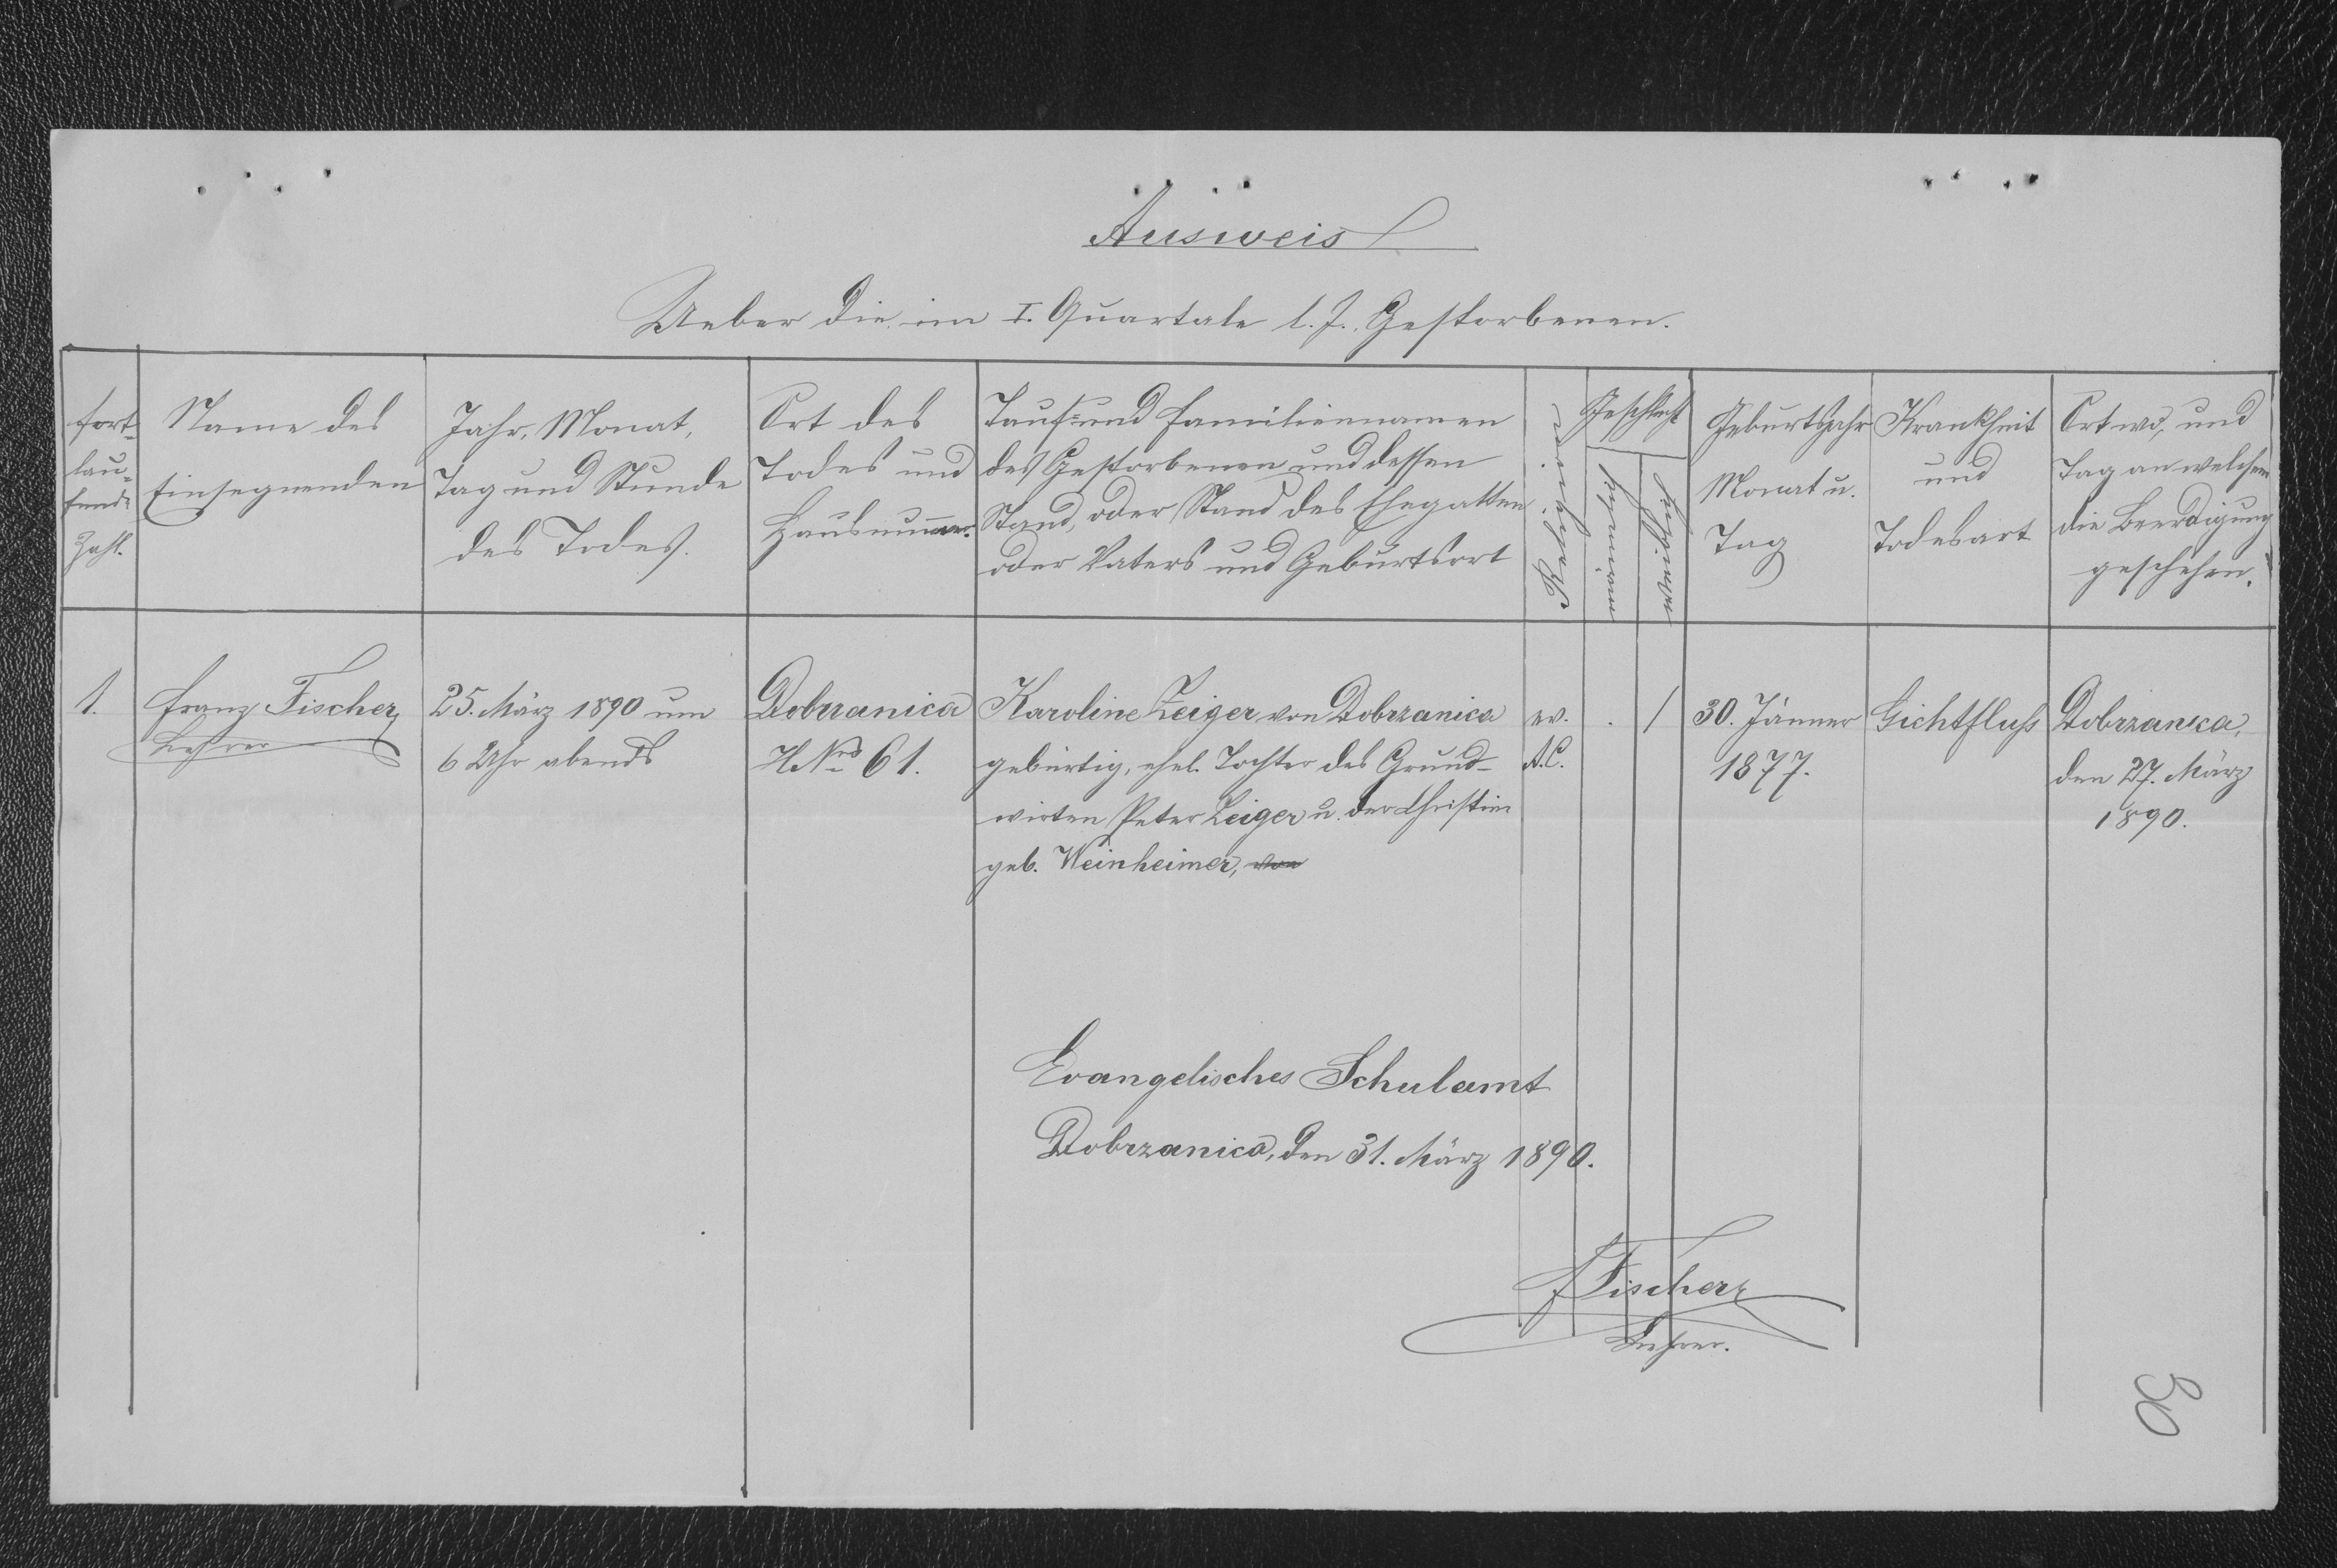 Ausweis
Ueber die im I. Quartale l. J. Gestorbenen.
fort-
lau-
fende
Zahl.
Name des
Einsegnenden
Jahr, Monat,
Tag und Stunde
des Todes.
Ort des
Todes und
Hausnummer.
Tauf- und Familiennamen
des Gestorbenen und dessen
Stand, oder Stand des Ehegatten
oder Vaters und Geburtsort
Religion
Geschlecht
männlich
weiblich
Geburtsjahr
Monat u.
Tag
Krankheit
und
Todesart
Ort wo, und
Tag an welchem
die Beerdigung
geschehen.
1.
Franz Fischer
Lehrer
25. März 1890 um
6 Uhr abends
Dobrzanica
H Nro 61.
Karoline Leiger von Dobrzanica
gebürtig, ehel. Tochter des Grund-
wirten Peter Leiger u. der Christine
geb. Weinheimer, von
ev.
A.C.
.
1
30. Jänner
1877.
Gichtfluß
Dobrzanica,
den 27. März
1890.
Evangelisches Schulamt
Dobrzanica, den 31. März 1890.
F Fischer
Lehrer.
50